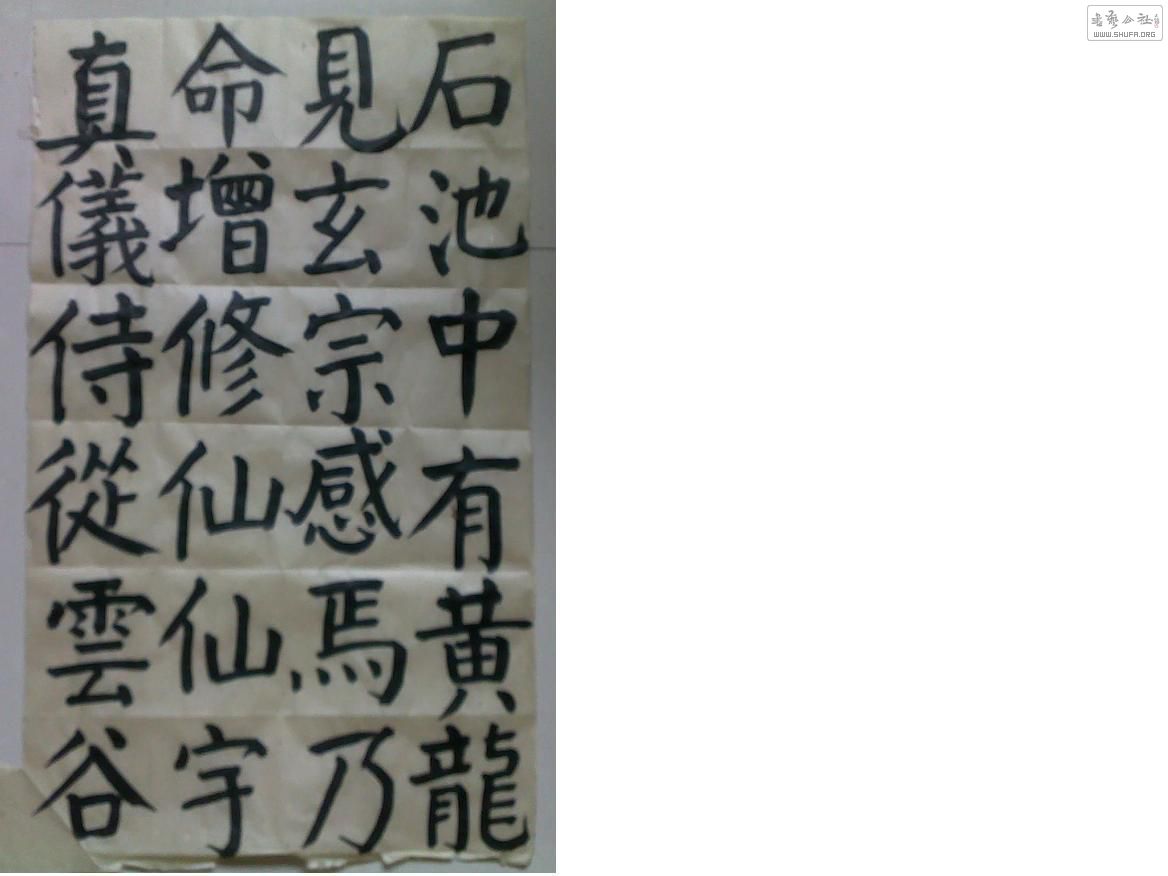 石池中有黃龍
見玄宗感焉乃
命增修仙仙宇
真儀侍從雲谷
书艺公社
WWW.SHUFA.ORG